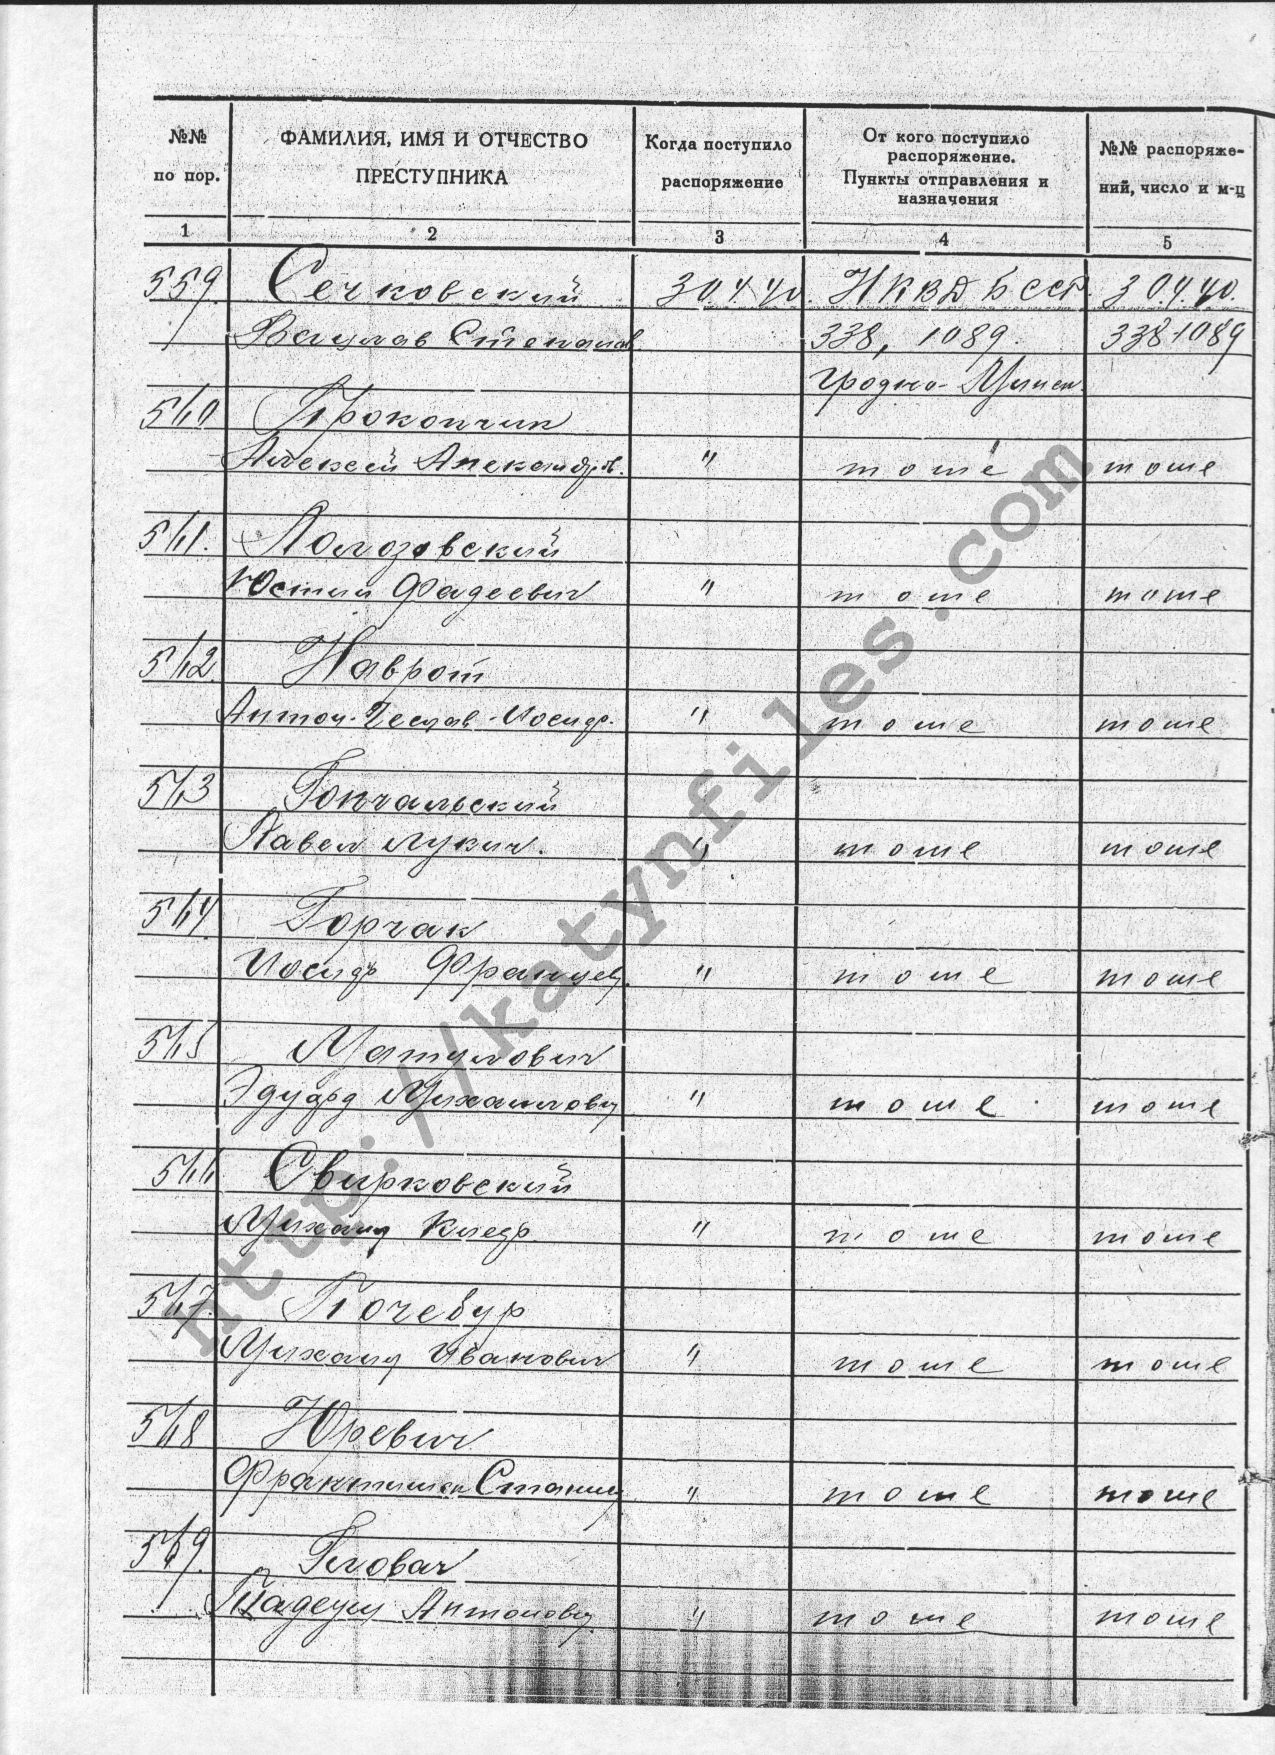 №№ по пор.
ФАМИЛИЯ, ИМЯ И ОТЧЕСТВО ПРЕСТУПНИКА
Когда поступило распоряжение
От кого поступило распоряжение. Пункты отправления и назначения
№№ распоряжений, число и м-ц
1 2 3 4 5
559. Сечковский 30.4.40. НКВД БССР. 30.4.40.
338, 1089. 338 1089
Гродно-Минск.
540 Прокопчик
Алексей Александров. " тоше тоше
541. Полозовский
Юстин Фадеевич " тоше тоше
542. Наврот
Антон-Чеслав-Иосиф. " тоше тоше
543 Гончальский
Павел Лукич. " тоше тоше
544 Горчак
Иосиф Францев. " тоше тоше
545 Матулович
Эдуард Михайлович " тоше тоше
Свирковский
Михаил " тоше тоше
547. Почебур
Михаил Иванович " тоше тоше
548 Юревич
Франтишек " тоше тоше
549. Головач
Тадеуш Антонович " тоше тоше
http://katynfiles.com